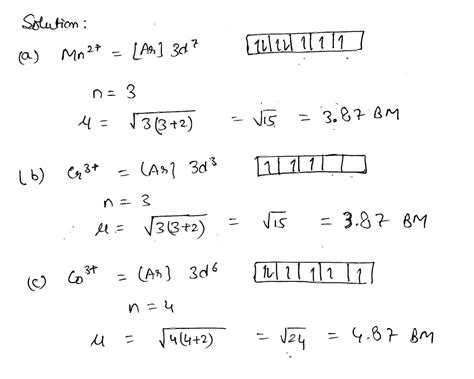 Solution:
(a) Mn²⁺ = [Ar] 3d⁷ 1l 1l 1 1 1
n = 3
μ = √3(3+2) = √15 = 3.87 BM
(b) Cr³⁺ = [Ar] 3d³ 1 1 1
n = 3
μ = √3(3+2) = √15 = 3.87 BM
(c) Co³⁺ = [Ar] 3d⁶ 1l 1 1 1 1
n = 4
μ = √4(4+2) = √24 = 4.87 BM